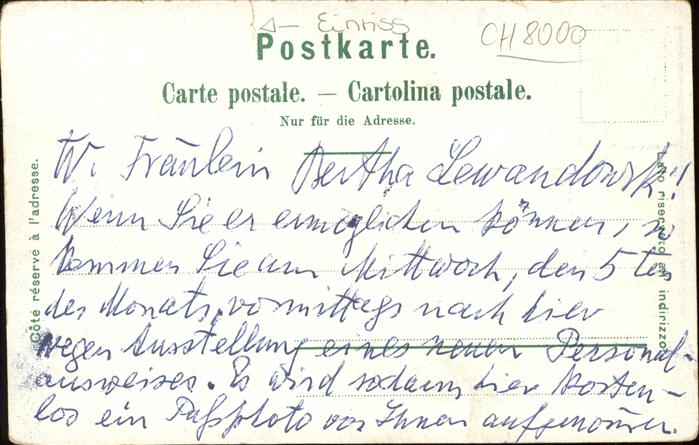 Einriss
CH 8000
Postkarte.
Carte postale. — Cartolina postale.
Nur für die Adresse.
Côté réservé à l'adresse.
Lato riservato all'indirizzo.
W. Fräulein Bertha Lewandowsk!!
Wenn Sie er ermöglichen können, so
kommen Sie am Mittwoch, den 5ten
des Monats, vormittags nach hier
wegen Ausstellung eines neuen Personal-
ausweises. Es wird sodann hier kosten-
los ein Paßphoto von Ihnen aufgenommen.